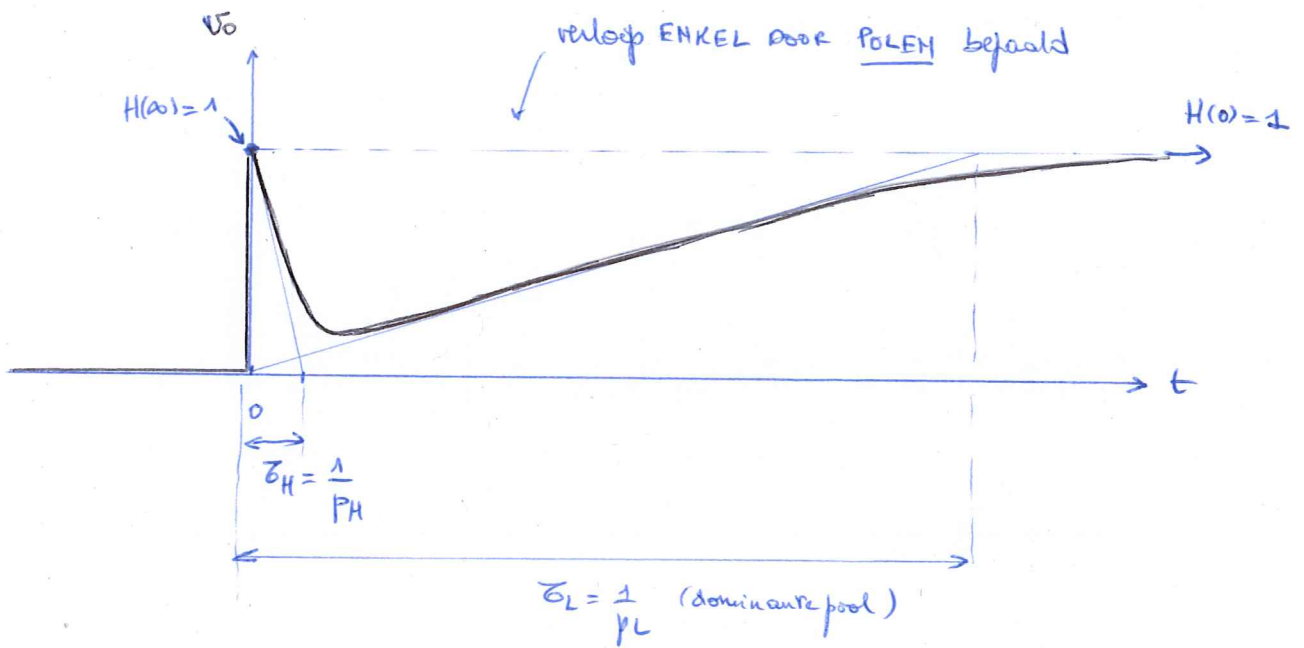 v₀
verloop ENKEL DOOR POLEN bepaald
H(∞)=1
H(0)=1
t
0
τH = 1/pH
τL = 1/pL (dominante pool)